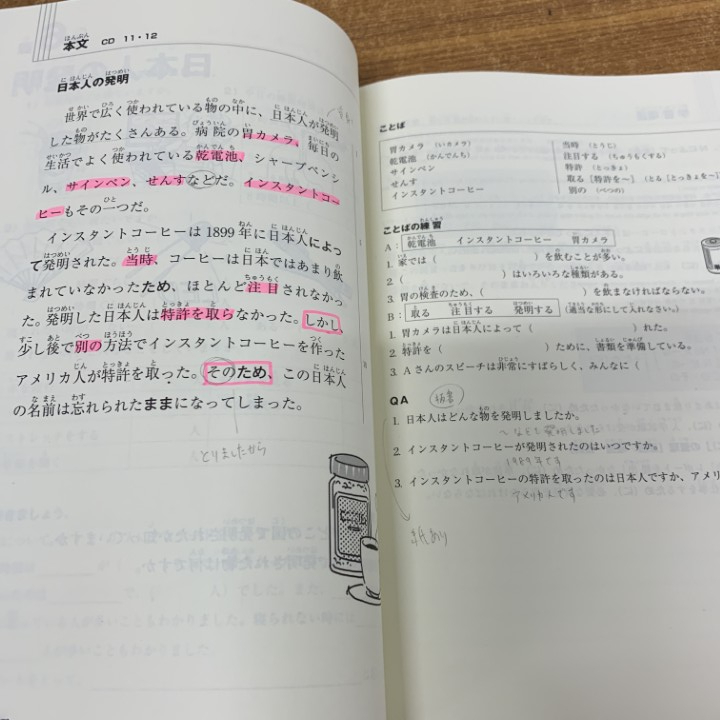 本文 CD 11・12
日本人の発明
世界で広く使われている物の中に、日本人が発明
した物がたくさんある。病院の胃カメラ、毎日の
生活でよく使われている乾電池、シャープペンシ
ル、サインペン、せんすなどだ。インスタントコー
ヒーもその一つだ。
インスタントコーヒーは1899年に日本人によっ
て発明された。当時、コーヒーは日本ではあまり飲
まれていなかったため、ほとんど注目されなかっ
た。発明した日本人は特許を取らなかった。しかし、
少し後で別の方法でインスタントコーヒーを作った
アメリカ人が特許を取った。そのため、この日本人
の名前は忘れられたままになってしまった。
とりましたから
ことば
胃カメラ (いカメラ)
乾電池 (かんでんち)
サインペン
せんす
インスタントコーヒー
当時 (とうじ)
注目する (ちゅうもくする)
特許 (とっきょ)
取る [特許を〜] (とる [とっきょを〜])
別の (べつの)
ことばの練習
A: 乾電池 インスタントコーヒー 胃カメラ
1. 家では ( ) を飲むことが多い。
2. ( ) はいろいろな種類がある。
3. 胃の検査のため、( ) を飲まなければならない。
B: 取る 注目する 発明する (適当な形にして入れなさい。)
1. 胃カメラは日本人によって ( ) れた。
2. 特許を ( ) ために、書類を準備している。
3. Aさんのスピーチは非常にすばらしく、みんなに (
QA
1. 日本人はどんな物を発明しましたか。
2. インスタントコーヒーが発明されたのはいつですか。
3. インスタントコーヒーの特許を取ったのは日本人ですか、アメリ
アメリカ人です